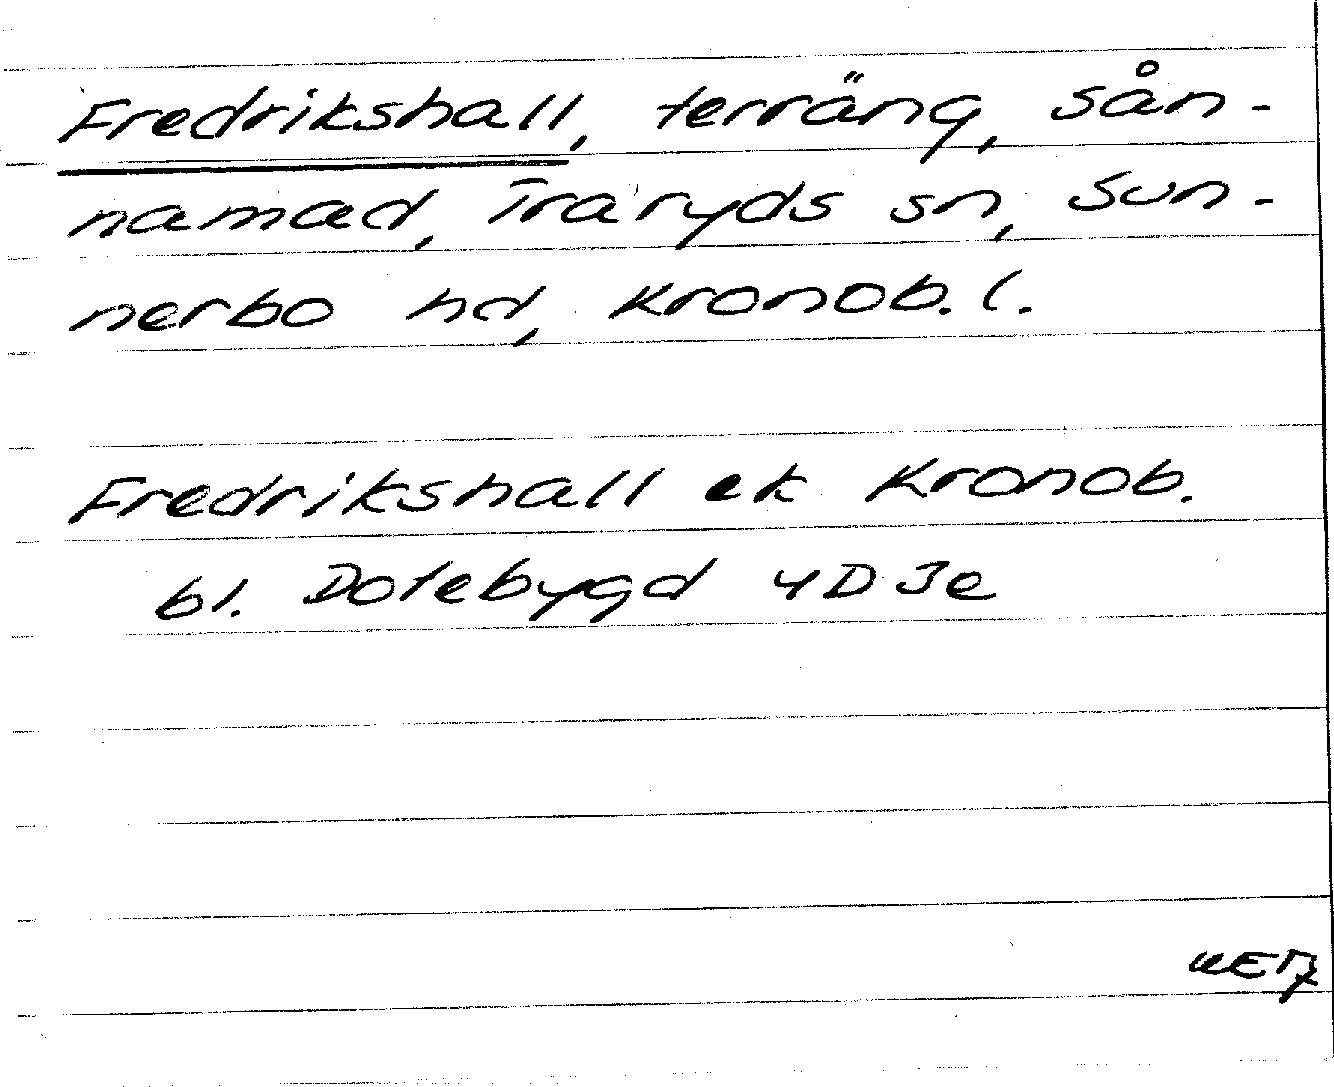 Fredrikshall, terräng, sån-
namad, Traryds sn, Sun-
nerbo hd, Kronob. l.
Fredrikshall ek Kronob.
bl. Dotebygd 4D 3e